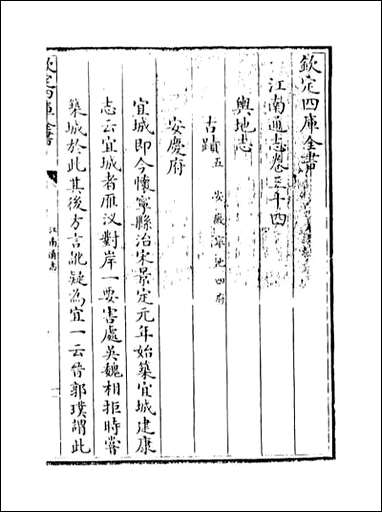 欽定四庫全書
江南通志卷三十四
輿地志
古蹟五 安徽寧池四府
安慶府
宜城即今懷寧縣治宋景定元年始築宜城建康
志云宜城者雁汊對岸一要害處吳魏相拒時嘗
築城於此其後方言訛疑為宜一云晉郭璞謂此
欽定四庫全書
江南通志
一